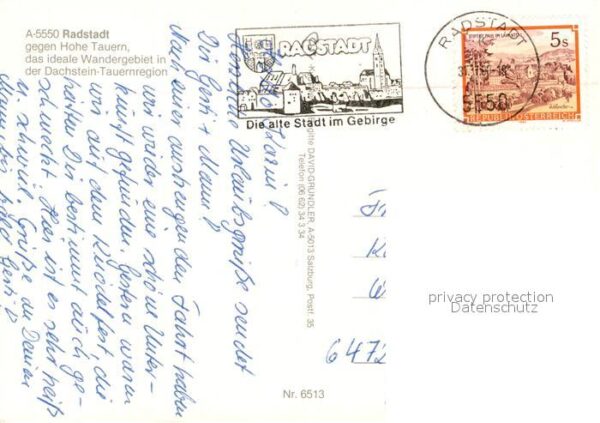 A-5550 Radstadt
gegen Hohe Tauern,
das ideale Wandergebiet in
der Dachstein-Tauernregion
RADSTADT
Die alte Stadt im Gebirge
RADSTADT
5550
5s
REPUBLIK ÖSTERREICH
Brigitte DAVID-GRUNDLER, A-5013 Salzburg, Postf. 35
Telefon (06 62) 34 3 34
Herzliche Urlaubsgrüße sendet
Dir Gerti + Mama!
Nach einer anstrengenden Fahrt haben
wir wieder eine schöne Unter-
kunft gefunden. Gestern waren
wir auf dem Knödelfest die
hätten Dir bestimmt auch ge-
schmeckt. Hier ist es sehr heiß
schwül. Grüße
bis bald Gerti
6472
Nr. 6513
privacy protection
Datenschutz